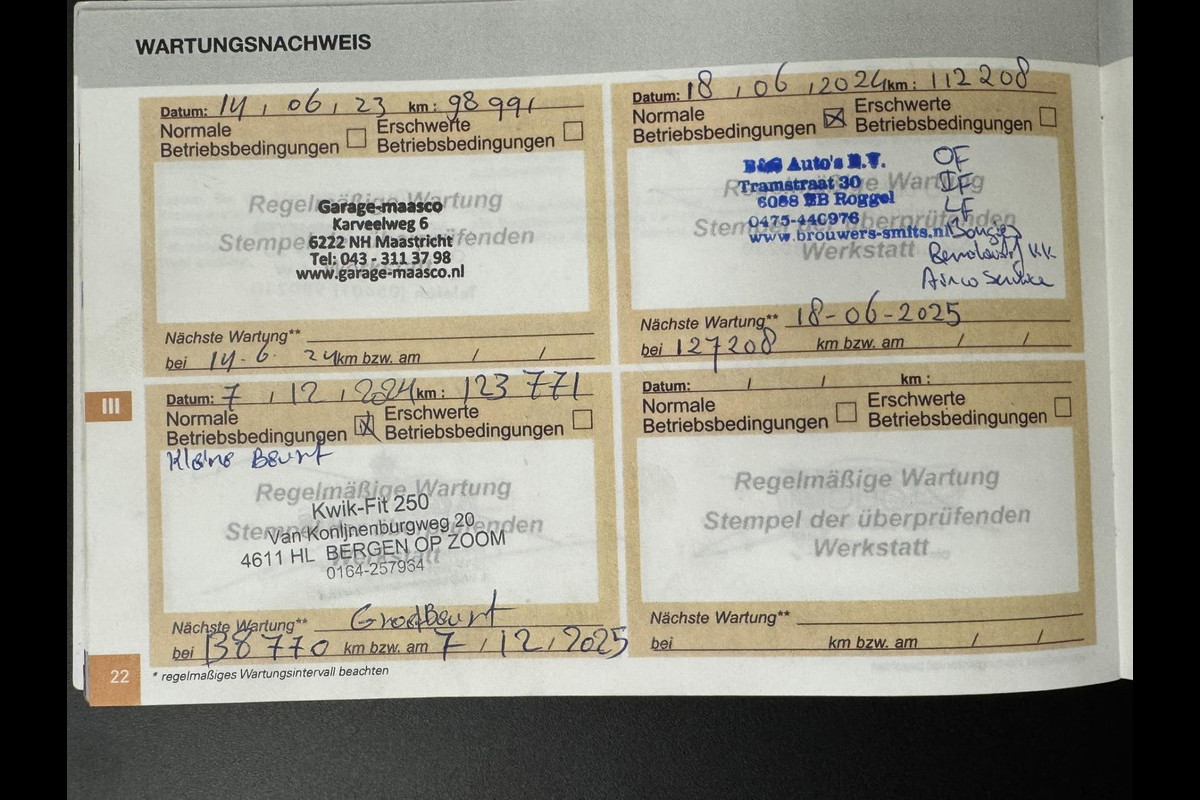 WARTUNGSNACHWEIS
Datum: 14 / 06 / 23 km: 98 991
Normale Betriebsbedingungen
Erschwerte Betriebsbedingungen
Regelmäßige Wartung
Garage-maasco
Karveelweg 6
6222 NH Maastricht
Tel: 043 - 311 37 98
www.garage-maasco.nl
Nächste Wartung**
bei 14-6. 24 km bzw. am / /
Datum: 18 / 06 / 2024 km: 112 208
Normale Betriebsbedingungen
Erschwerte Betriebsbedingungen
B&S Auto's B.V.
Tramstraat 30
6088 EB Roggel
0475-440976
www.brouwers-smits.nl
OF
IF
LF
Bougies
KK
Airco Service
Werkstatt
Nächste Wartung** 18-06-2025
bei 127208 km bzw. am / /
Datum: 7 / 12 / 2024 km: 123 771
Normale Betriebsbedingungen
Erschwerte Betriebsbedingungen
Kleine Beurt
Regelmäßige Wartung
Kwik-Fit 250
Van Konijnenburgweg 20
4611 HL BERGEN OP ZOOM
0164-257934
Nächste Wartung** Groot Beurt
bei 138770 km bzw. am 7 / 12 / 2025
Datum: / / km:
Normale Betriebsbedingungen
Erschwerte Betriebsbedingungen
Regelmäßige Wartung
Stempel der überprüfenden
Werkstatt
Nächste Wartung**
bei km bzw. am / /
* regelmaßiges Wartungsintervall beachten
III
22